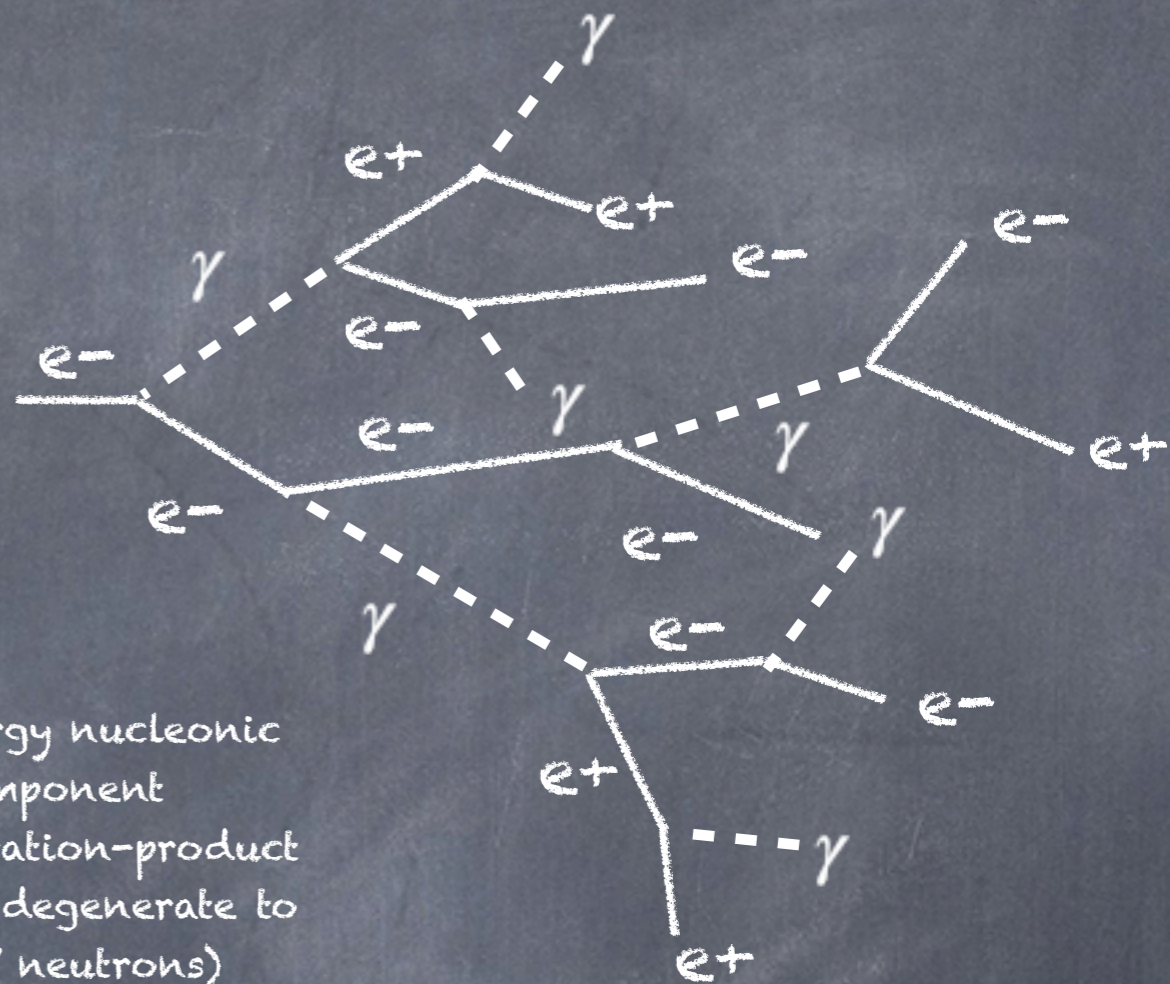 γ
e+
e+
e-
γ
e-
e-
e-
γ
e-
γ
e+
e-
γ
e-
e-
γ
e-
e+
γ
e+
rgy nucleonic
mponent
ration-product
degenerate to
neutrons)